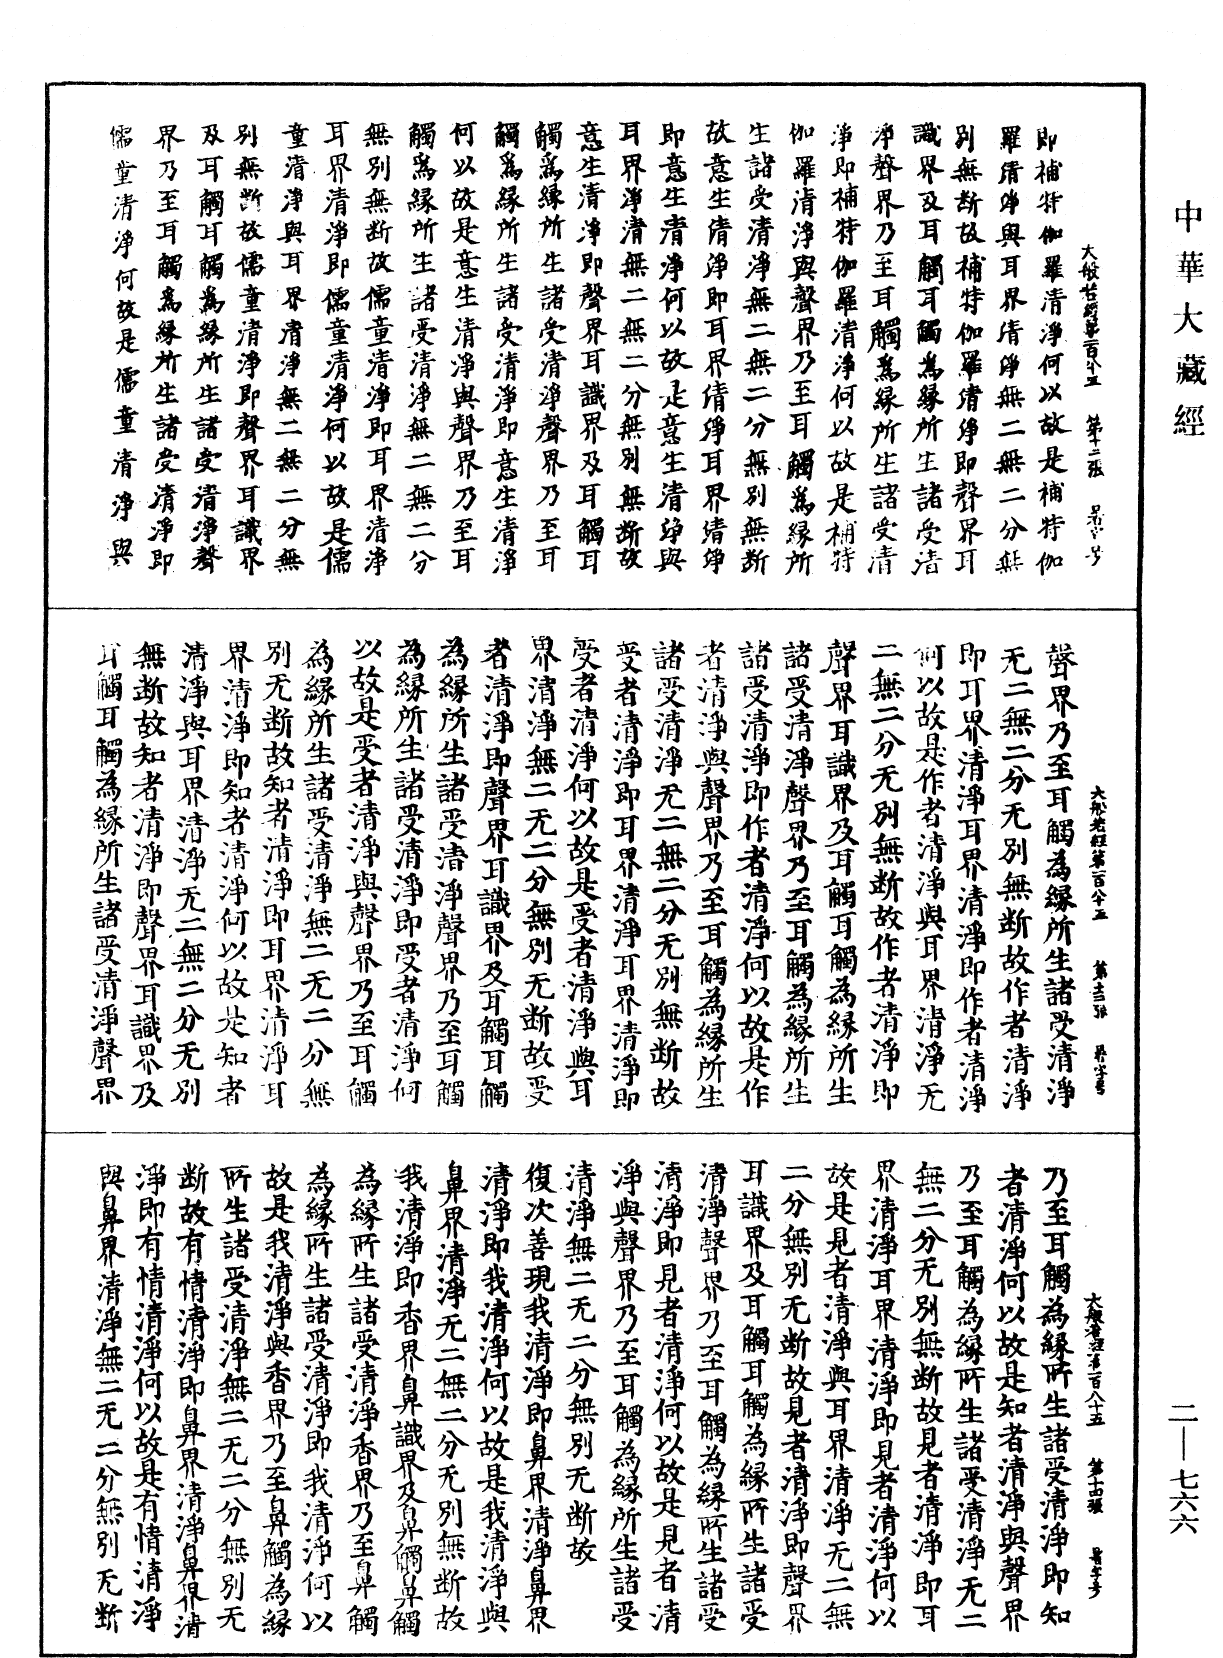 中華大藏經
二—七六六
大般若經第一百八十五 第十二張
即補特伽羅清淨何以故是補特伽
羅清淨與耳界清淨無二無二分無
別無斷故補特伽羅清淨即聲界耳
識界及耳觸耳觸為緣所生諸受清
淨聲界乃至耳觸為緣所生諸受清
淨即補特伽羅清淨何以故是補特
伽羅清淨與聲界乃至耳觸為緣所
生諸受清淨無二無二分無別無斷
故意生清淨即耳界清淨耳界清淨
即意生清淨何以故是意生清淨與
耳界淨清無二無二分無別無斷故
意生清淨即聲界耳識界及耳觸耳
觸為緣所生諸受清淨聲界乃至耳
觸為緣所生諸受清淨即意生清淨
何以故是意生清淨與聲界乃至耳
觸為緣所生諸受清淨無二無二分
無別無斷故儒童清淨即耳界清淨
耳界清淨即儒童清淨何以故是儒
童清淨與耳界清淨無二無二分無
別無斷故儒童清淨即聲界耳識界
及耳觸耳觸為緣所生諸受清淨聲
界乃至耳觸為緣所生諸受清淨即
儒童清淨何故是儒童清淨與
大般若經第一百八十五 第十三張
聲界乃至耳觸為緣所生諸受清淨
无二無二分无別無斷故作者清淨
即耳界清淨耳界清淨即作者清淨
何以故是作者清淨與耳界清淨无
二無二分无別無斷故作者清淨即
聲界耳識界及耳觸耳觸為緣所生
諸受清淨聲界乃至耳觸為緣所生
諸受清淨即作者清淨何以故是作
者清淨與聲界乃至耳觸為緣所生
諸受清淨无二無二分无別無斷故
受者清淨即耳界清淨耳界清淨即
受者清淨何以故是受者清淨與耳
界清淨無二无二分無別无斷故受
者清淨即聲界耳識界及耳觸耳觸
為緣所生諸受清淨聲界乃至耳觸
為緣所生諸受清淨即受者清淨何
以故是受者清淨與聲界乃至耳觸
為緣所生諸受清淨無二无二分無
別无斷故知者清淨即耳界清淨耳
界清淨即知者清淨何以故是知者
清淨與耳界清淨无二無二分无別
無斷故知者清淨即聲界耳識界及
耳觸耳觸為緣所生諸受清淨聲界
大般若經第一百八十五 第十四張
乃至耳觸為緣所生諸受清淨即知
者清淨何以故是知者清淨與聲界
乃至耳觸為緣所生諸受清淨无二
無二分无別無斷故見者清淨即耳
界清淨耳界清淨即見者清淨何以
故是見者清淨與耳界清淨无二無
二分無別无斷故見者清淨即聲界
耳識界及耳觸耳觸為緣所生諸受
清淨聲界乃至耳觸為緣所生諸受
清淨即見者清淨何以故是見者清
淨與聲界乃至耳觸為緣所生諸受
清淨無二无二分無別无斷故
復次善現我清淨即鼻界清淨鼻界
清淨即我清淨何以故是我清淨與
鼻界清淨无二無二分无別無斷故
我清淨即香界鼻識界及鼻觸鼻觸
為緣所生諸受清淨香界乃至鼻觸
為緣所生諸受清淨即我清淨何以
故是我清淨與香界乃至鼻觸為緣
所生諸受清淨無二无二分無別无
斷故有情清淨即鼻界清淨鼻界清
淨即有情清淨何以故是有情清淨
與鼻界清淨無二无二分無別无斷